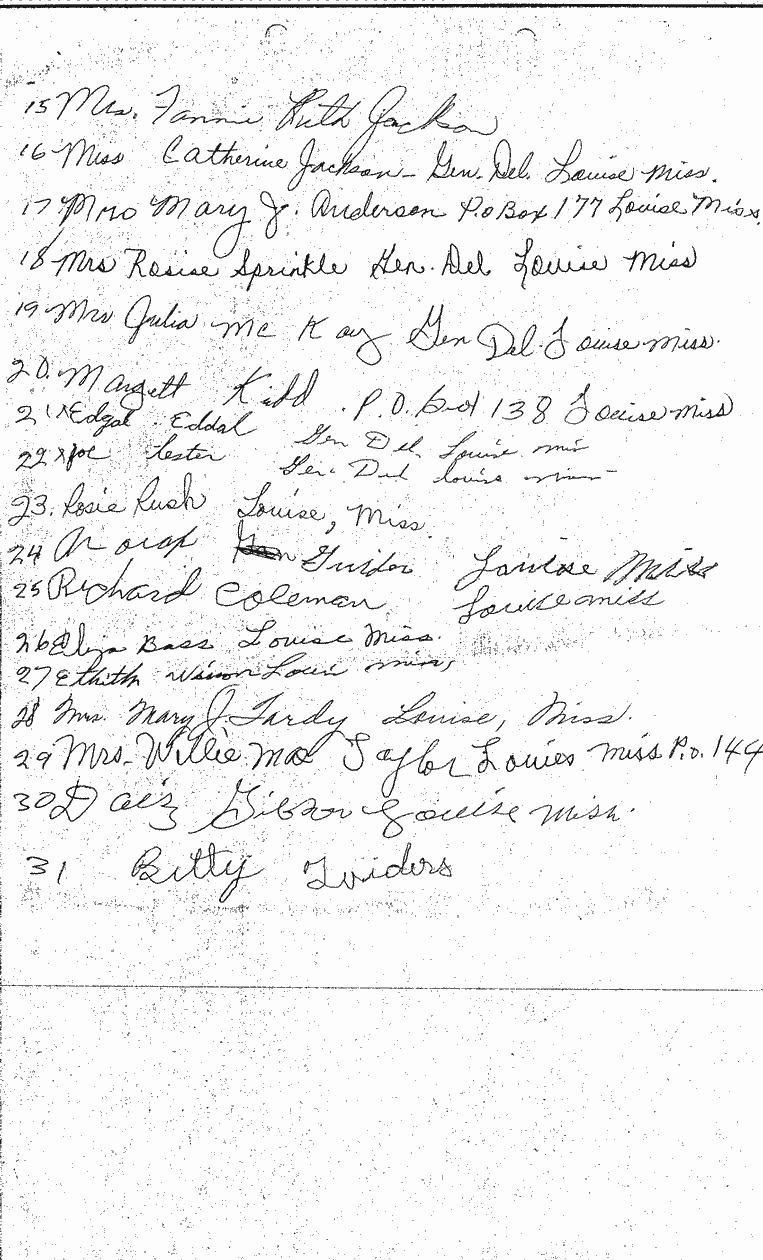 15 Mrs. Fannie Ruth Jackson
16 Miss Catherine Jackson - Gen. Del. Louise Miss.
17 Mrs Mary J. Anderson P.o Box 177 Louise Miss.
18 Mrs Rosise Sprinkle Gen. Del Louise Miss
19 Mrs Julia Mc Kay Gen Del. Louise Miss.
20. Margett Kidd. P.O. box 138 Louise Miss
21 x Edgal Eddal Gen Del Louise mis
22 x Joe Lester Gen. Del louise miss
23. Rosie Rush Louise, Miss.
24 Guider Louise Miss
25 Richard Coleman Louise miss
26 Eliza Bass Louise Miss.
27 Ethith Louise miss,
28 Mrs. Mary J. Tardy Louise, Miss.
29 Mrs. Willie Mae Taylor Louies Miss P.o. 144
30 Daisy Gibson Louise Miss.
31 Betty Guiders